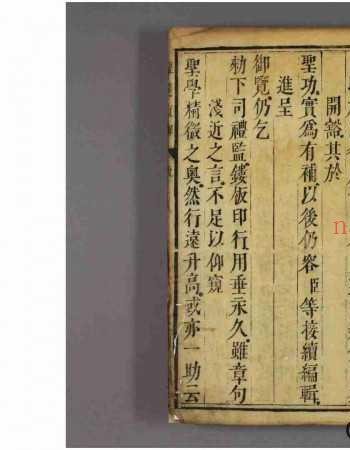 開豁其於
聖功實爲有補以後仍容臣等接續編輯
進呈
御覽仍乞
勑下司禮監鏤板印行用垂永久雖章句
淺近之言不足以仰窺
聖學精微之奥然行遠升高或亦一助云